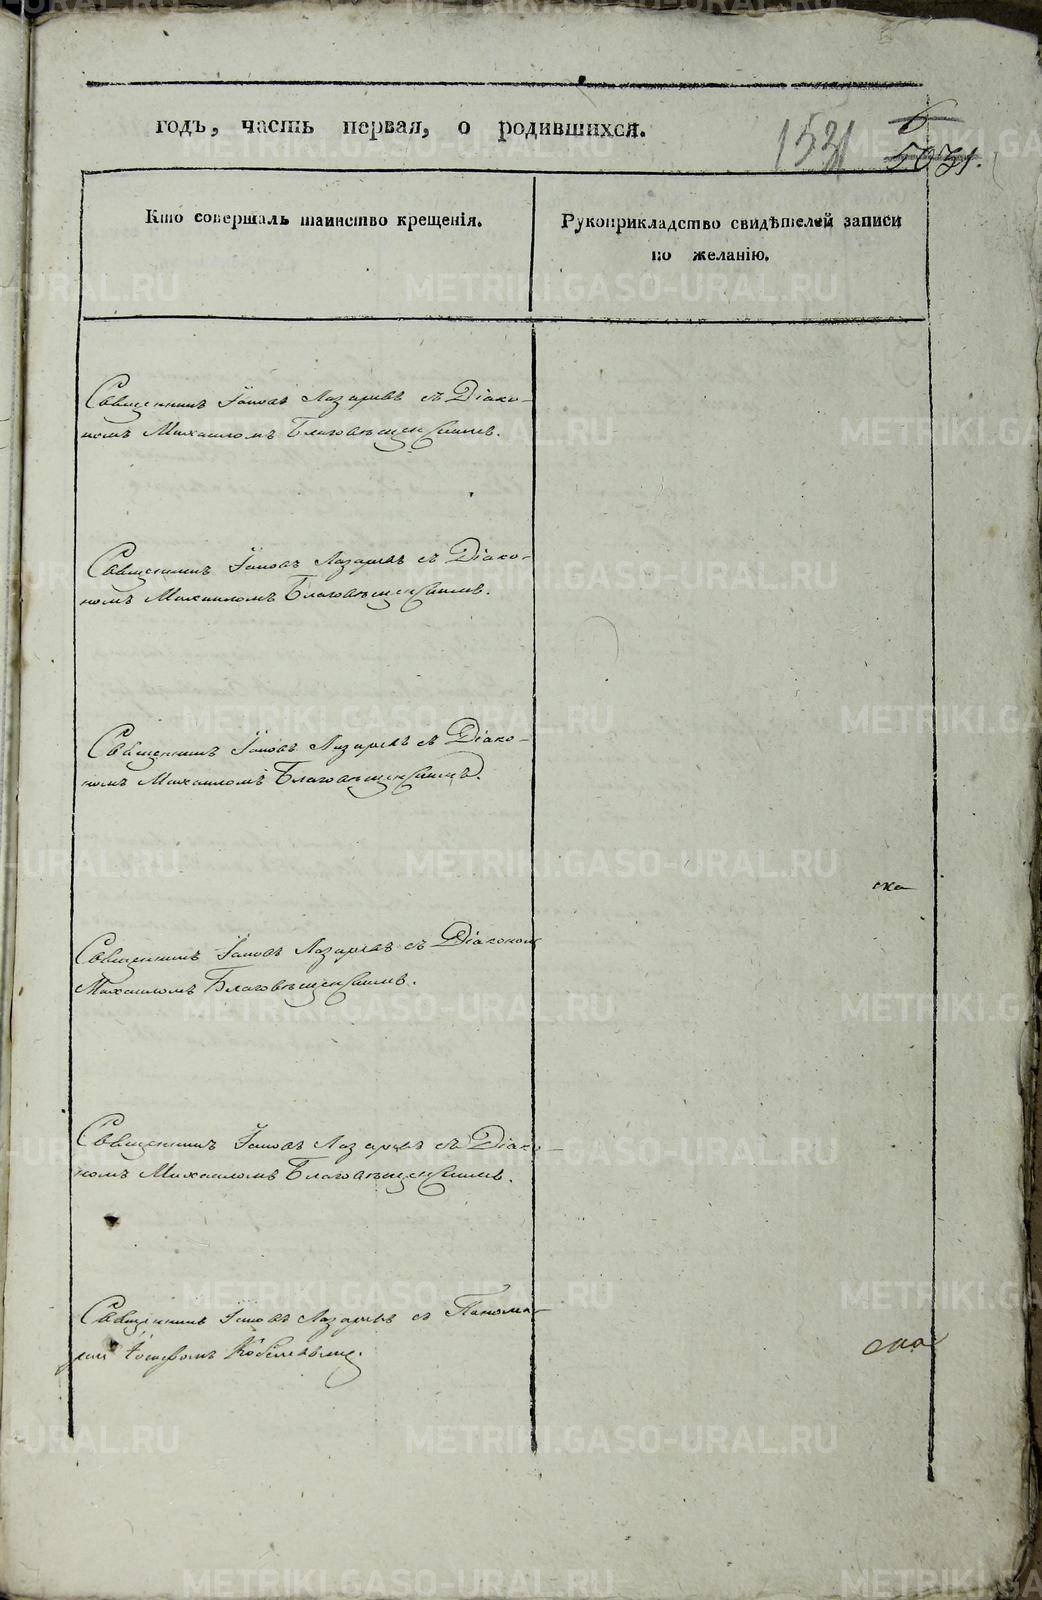 годъ, часть первая, о родившихся.
1531
6
5031.
Кто совершалъ таинство крещенія.
Рукоприкладство свидѣтелей записи
по желанію.
Священникъ Іаковъ Лазаревъ съ Діако-
номъ Михаиломъ Благовѣщенскимъ.
Священникъ Іаковъ Лазаревъ съ Діако-
номъ Михаиломъ Благовѣщенскимъ.
Священникъ Іаковъ Лазаревъ съ Діако-
номъ Михаиломъ Благовѣщенскимъ.
Священникъ Іаковъ Лазаревъ съ Діакономъ
Михаиломъ Благовѣщенскимъ.
Священникъ Іаковъ Лазаревъ съ Діако-
номъ Михаиломъ Благовѣщенскимъ.
Священникъ Іаковъ Лазаревъ съ Понома-
ремъ
METRIKI.GASO-URAL.RU